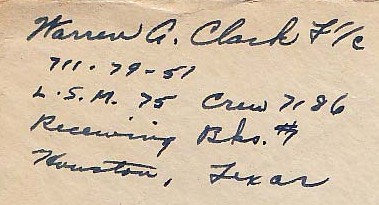 Warren A. Clark F 1/c
711-79-51
L.S.M. 75 Crew 7186
Receiving Bks. #7
Houston, Texas